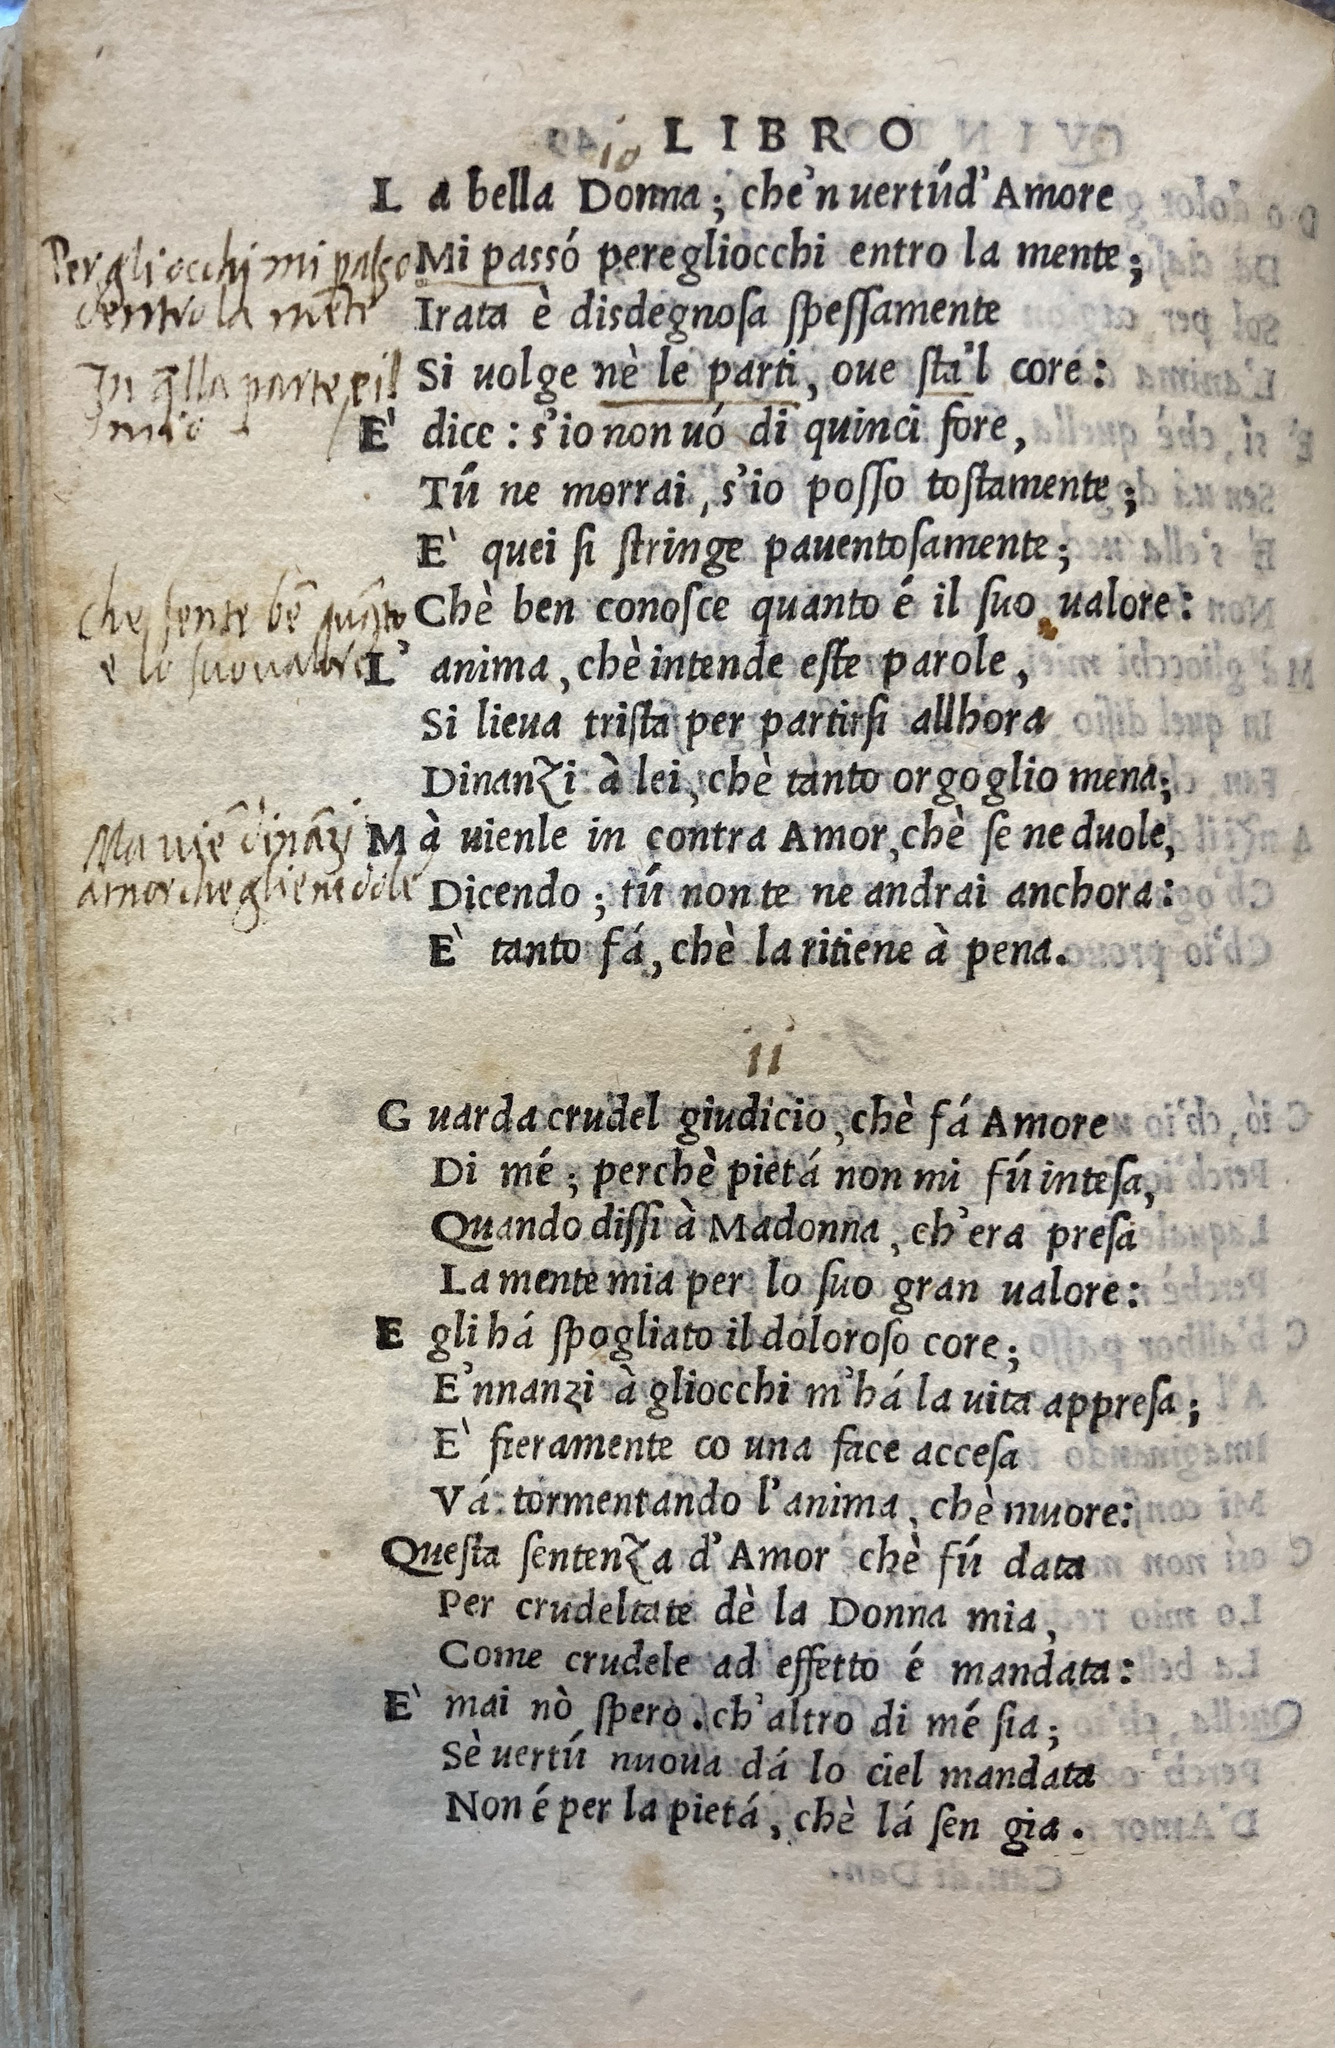 LIBRO
10
La bella Donna; che'n uertúd'Amore
Per gli occhi mi passo
dentro la mēte
Mi passó peregliocchi entro la mente;
Irata è disdegnosa ſpeſſamente
In q̄lla parte, e il
mio
Si uolge nè le parti, oue ſta'l core:
E' dice: s'io non uó di quinci fore,
Tú ne morrai, s'io poſſo toſtamente;
E' quei ſi ſtringe pauentoſamente;
che sente bē quāto
e lo suo ualore
Chè ben conoſce quanto é il ſuo ualore:
L' anima, chè intende eſte parole,
Si lieua triſta per partirſi allhora
Dinanzi à lei, chè tanto orgoglio mena;
Ma uiē dināzi
amor che gliene dole
Mà uienle in contra Amor, chè ſe ne duole,
Dicendo; tú non te ne andrai anchora:
E' tanto fá, chè la ritiene à pena.
11
Guarda crudel giudicio, chè fá Amore
Di mé; perchè pietá non mi fú inteſa,
Quando diſſi à Madonna, ch'era preſa
La mente mia per lo ſuo gran ualore:
Egli há ſpogliato il doloroſo core;
E'nnanzi à gliocchi m'há la uita appreſa;
E' fieramente co una face acceſa
Vá tormentando l'anima, chè muore:
Queſta ſentenza d'Amor chè fú data
Per crudeltate dè la Donna mia,
Come crudele ad effetto é mandata:
E' mai nò ſpero. ch'altro di mé ſia;
Sè uertú nuoua dá lo ciel mandata
Non é per la pietá, chè lá ſen gia.